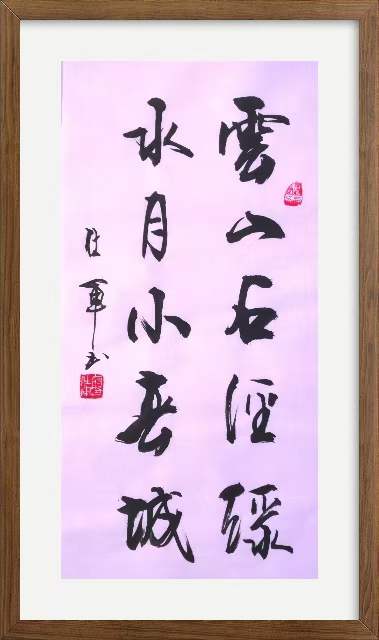 雲山石徑緣
水月小春城
軍书